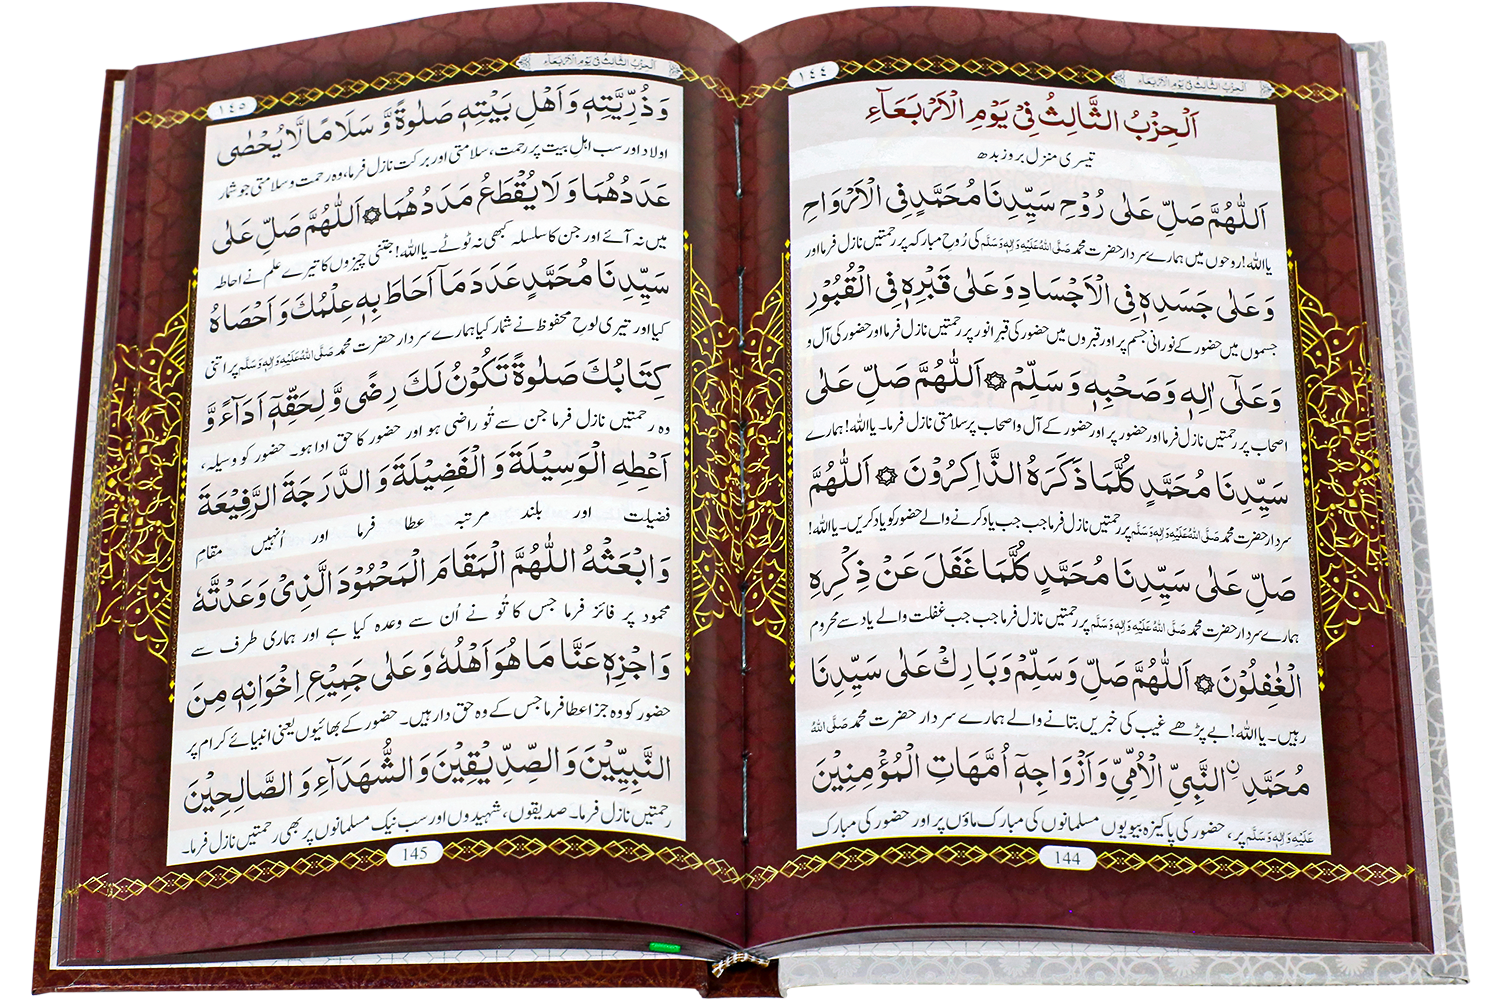 اَلْحِزْبُ الثَّالِثُ فِیْ یَوْمِ الْاَرْبَعَآءِ
١٤٤
اَلْحِزْبُ الثَّالِثُ فِیْ یَوْمِ الْاَرْبَعَآءِ
تیسری منزل بروز بدھ
اَللّٰهُمَّ صَلِّ عَلٰی رُوْحِ سَیِّدِنَا مُحَمَّدٍ فِی الْاَرْوَاحِ
یااللہ! روحوں میں ہمارے سردار حضرت محمد صَلَّی اللهُ عَلَیْهِ وَاٰلِهٖ وَسَلَّم کی رُوحِ مبارکہ پر رحمتیں نازل فرما اور
وَ عَلٰی جَسَدِهٖ فِی الْاَجْسَادِ وَ عَلٰی قَبْرِهٖ فِی الْقُبُوْرِ
جسموں میں حضور کے نورانی جسم پر اور قبروں میں حضور کی قبر انور پر رحمتیں نازل فرما اور حضور کی آل و
وَ عَلٰٓی اٰلِهٖ وَ صَحْبِهٖ وَ سَلِّمْ ۞ اَللّٰهُمَّ صَلِّ عَلٰی
اصحاب پر رحمتیں نازل فرما اور حضور پر اور حضور کے آل و اصحاب پر سلامتی نازل فرما۔ یااللہ! ہمارے
سَیِّدِنَا مُحَمَّدٍ كُلَّمَا ذَكَرَهُ الذَّاكِرُوْنَ ۞ اَللّٰهُمَّ
سردار حضرت محمد صَلَّی اللهُ عَلَیْهِ وَاٰلِهٖ وَسَلَّم پر رحمتیں نازل فرما جب جب یاد کرنے والے حضور کو یاد کریں۔ یااللہ!
صَلِّ عَلٰی سَیِّدِنَا مُحَمَّدٍ كُلَّمَا غَفَلَ عَنْ ذِكْرِهِ
ہمارے سردار حضرت محمد صَلَّی اللهُ عَلَیْهِ وَاٰلِهٖ وَسَلَّم پر رحمتیں نازل فرما جب جب غفلت والے یاد سے محروم
الْغٰفِلُوْنَ ۞ اَللّٰهُمَّ صَلِّ وَ سَلِّمْ وَ بَارِكْ عَلٰی سَیِّدِنَا
رہیں۔ یااللہ! بے پڑھے غیب کی خبریں بتانے والے ہمارے سردار حضرت محمد صَلَّی اللهُ
مُحَمَّدِ نِ النَّبِیِّ الْاُمِّیِّ وَ اَزْوَاجِهٖٓ اُمَّهَاتِ الْمُؤْمِنِیْنَ
عَلَیْهِ وَاٰلِهٖ وَسَلَّم پر، حضور کی پاکیزہ بیویوں مسلمانوں کی مبارک ماؤں پر اور حضور کی مبارک
144
اَلْحِزْبُ الثَّالِثُ فِیْ یَوْمِ الْاَرْبَعَآءِ
١٤٥
وَ ذُرِّیَّتِهٖ وَ اَهْلِ بَیْتِهٖ صَلٰوةً وَّ سَلَامًا لَّا یُحْصٰی
اولاد اور سب اہلِ بیت پر رحمت، سلامتی اور برکت نازل فرما، وہ رحمت و سلامتی جو شمار
عَدَدُهُمَا وَ لَا یُقْطَعُ مَدَدُهُمَا ۞ اَللّٰهُمَّ صَلِّ عَلٰی
میں نہ آئے اور جن کا سلسلہ کبھی نہ ٹوٹے۔ یااللہ! جتنی چیزوں کا تیرے علم نے احاطہ
سَیِّدِنَا مُحَمَّدٍ عَدَدَ مَآ اَحَاطَ بِهٖ عِلْمُكَ وَ اَحْصَاهُ
کیا اور تیری لوحِ محفوظ نے شمار کیا ہمارے سردار حضرت محمد صَلَّی اللهُ عَلَیْهِ وَاٰلِهٖ وَسَلَّم پر اتنی
كِتَابُكَ صَلٰوةً تَكُوْنُ لَكَ رِضًی وَّ لِحَقِّهٖٓ اَدَآءً وَّ
وہ رحمتیں نازل فرما جن سے تُو راضی ہو اور حضور کا حق ادا ہو۔ حضور کو وسیلہ،
اَعْطِهِ الْوَسِیْلَةَ وَ الْفَضِیْلَةَ وَ الدَّرَجَةَ الرَّفِیْعَةَ
فضیلت اور بلند مرتبہ عطا فرما اور اُنہیں مقامِ
وَابْعَثْهُ اللّٰهُمَّ الْمَقَامَ الْمَحْمُوْدَ الَّذِیْ وَعَدْتَّهٗ
محمود پر فائز فرما جس کا تُو نے اُن سے وعدہ کیا ہے اور ہماری طرف سے
وَاجْزِهٖ عَنَّا مَا هُوَ اَهْلُهٗ وَ عَلٰی جَمِیْعِ اِخْوَانِهٖ مِنَ
حضور کو وہ جزا عطا فرما جس کے وہ حق دار ہیں۔ حضور کے بھائیوں یعنی انبیائے کرام پر
النَّبِیِّیْنَ وَ الصِّدِّیْقِیْنَ وَ الشُّهَدَآءِ وَ الصَّالِحِیْنَ
رحمتیں نازل فرما۔ صدیقوں، شہیدوں اور سب نیک مسلمانوں پر بھی رحمتیں نازل فرما۔
145